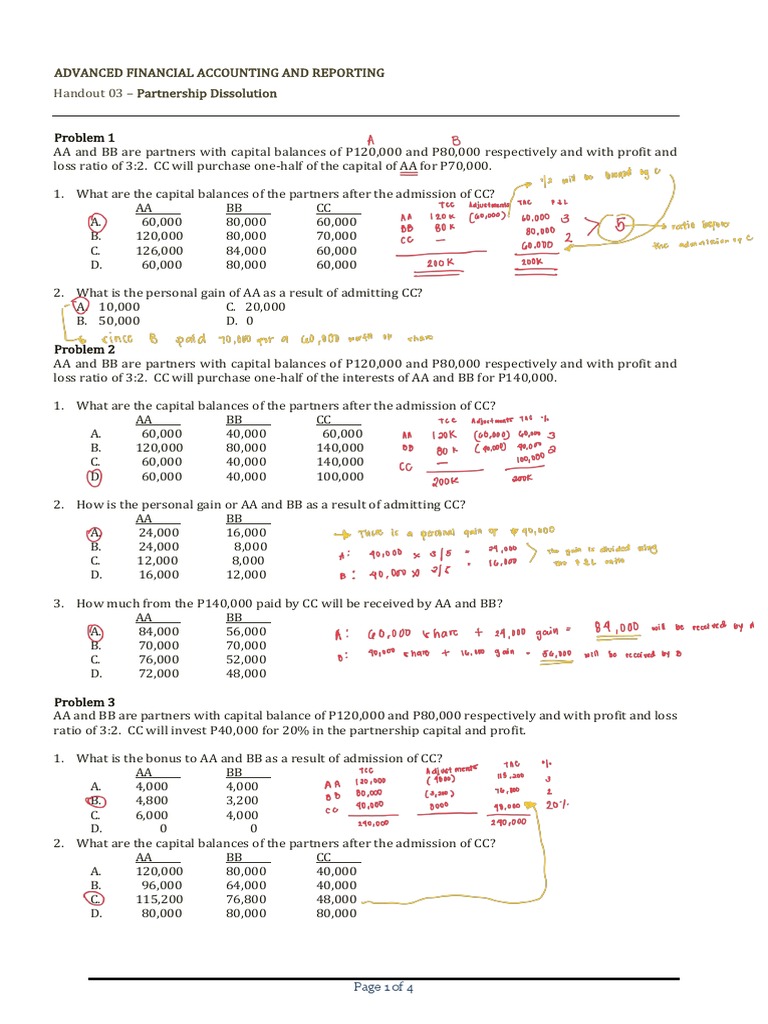 ADVANCED FINANCIAL ACCOUNTING AND REPORTING
Handout 03 – Partnership Dissolution
Problem 1
A B
AA and BB are partners with capital balances of P120,000 and P80,000 respectively and with profit and
loss ratio of 3:2. CC will purchase one-half of the capital of AA for P70,000.
1/2 will be bought by C
1. What are the capital balances of the partners after the admission of CC?
AA BB CC
A. 60,000 80,000 60,000
B. 120,000 80,000 70,000
C. 126,000 84,000 60,000
D. 60,000 80,000 60,000
TCC Adjustments TAC P&L
AA 120K (60,000) 60,000 3
BB 80K 80,000 2
CC — 60,000
200K 200K
5 → ratio before
the admission of C
2. What is the personal gain of AA as a result of admitting CC?
A. 10,000 C. 20,000
B. 50,000 D. 0
since B paid 70,000 for a 60,000 worth of share
Problem 2
AA and BB are partners with capital balances of P120,000 and P80,000 respectively and with profit and
loss ratio of 3:2. CC will purchase one-half of the interests of AA and BB for P140,000.
1. What are the capital balances of the partners after the admission of CC?
AA BB CC
A. 60,000 40,000 60,000
B. 120,000 80,000 140,000
C. 60,000 40,000 140,000
D. 60,000 40,000 100,000
TCC Adjustments TAC %
AA 120K (60,000) 60,000 3
BB 80K (40,000) 40,000 2
CC — 100,000
200K 200K
2. How is the personal gain or AA and BB as a result of admitting CC?
AA BB
A. 24,000 16,000
B. 24,000 8,000
C. 12,000 8,000
D. 16,000 12,000
→ There is a personal gain of 40,000
A: 40,000 × 3/5 = 24,000
B: 40,000 × 2/5 = 16,000
The gain is divided using
the P&L ratio
3. How much from the P140,000 paid by CC will be received by AA and BB?
AA BB
A. 84,000 56,000
B. 70,000 70,000
C. 76,000 52,000
D. 72,000 48,000
A: 60,000 share + 24,000 gain = 84,000 will be received by A
B: 40,000 share + 16,000 gain = 56,000 will be received by B
Problem 3
AA and BB are partners with capital balance of P120,000 and P80,000 respectively and with profit and loss
ratio of 3:2. CC will invest P40,000 for 20% in the partnership capital and profit.
1. What is the bonus to AA and BB as a result of admission of CC?
AA BB
A. 4,000 4,000
B. 4,800 3,200
C. 6,000 4,000
D. 0 0
TCC Adjustments TAC %
AA 120,000 (4800) 115,200 3
BB 80,000 (3,200) 76,800 2
CC 40,000 8000 48,000 20%
240,000 240,000
2. What are the capital balances of the partners after the admission of CC?
AA BB CC
A. 120,000 80,000 40,000
B. 96,000 64,000 40,000
C. 115,200 76,800 48,000
D. 80,000 80,000 80,000
Page 1 of 4